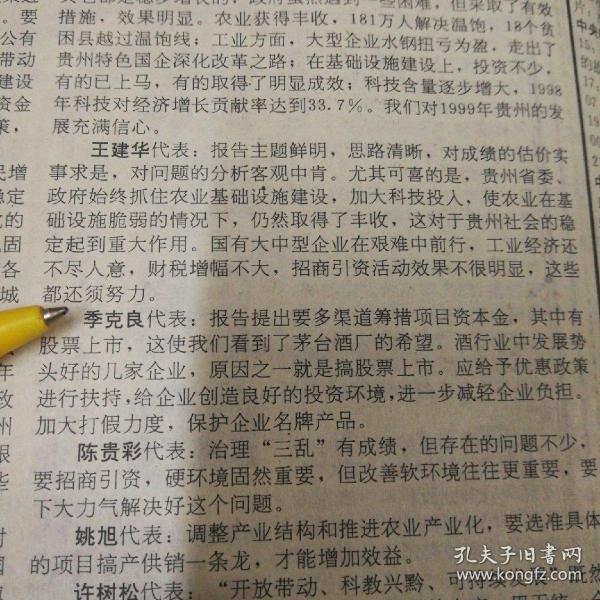 措施，效果明显。农业获得丰收，181万人解决温饱，18个贫
困县越过温饱线；工业方面，大型企业水钢扭亏为盈，走出了
贵州特色国企深化改革之路；在基础设施建设上，投资不少，
有的已上马，有的取得了明显成效；科技含量逐步增大，1998
年科技对经济增长贡献率达到33.7%。我们对1999年贵州的发
展充满信心。
王建华代表：报告主题鲜明，思路清晰，对成绩的估价实
事求是，对问题的分析客观中肯。尤其可喜的是，贵州省委、
政府始终抓住农业基础设施建设，加大科技投入，使农业在基
础设施脆弱的情况下，仍然取得了丰收，这对于贵州社会的稳
定起到重大作用。国有大中型企业在艰难中前行，工业经济还
不尽人意，财税增幅不大，招商引资活动效果不很明显，这些
都还须努力。
季克良代表：报告提出要多渠道筹措项目资本金，其中有
股票上市，这使我们看到了茅台酒厂的希望。酒行业中发展势
头好的几家企业，原因之一就是搞股票上市。应给予优惠政策
进行扶持，给企业创造良好的投资环境，进一步减轻企业负担。
加大打假力度，保护企业名牌产品。
陈贵彩代表：治理“三乱”有成绩，但存在的问题不少，
要招商引资，硬环境固然重要，但改善软环境往往更重要，要
下大力气解决好这个问题。
姚旭代表：调整产业结构和推进农业产业化，要选准具体
的项目搞产供销一条龙，才能增加效益。
许树松代表：“开放带动、科教兴黔、可持续发展”
孔夫子旧书网
www.kongfz.com